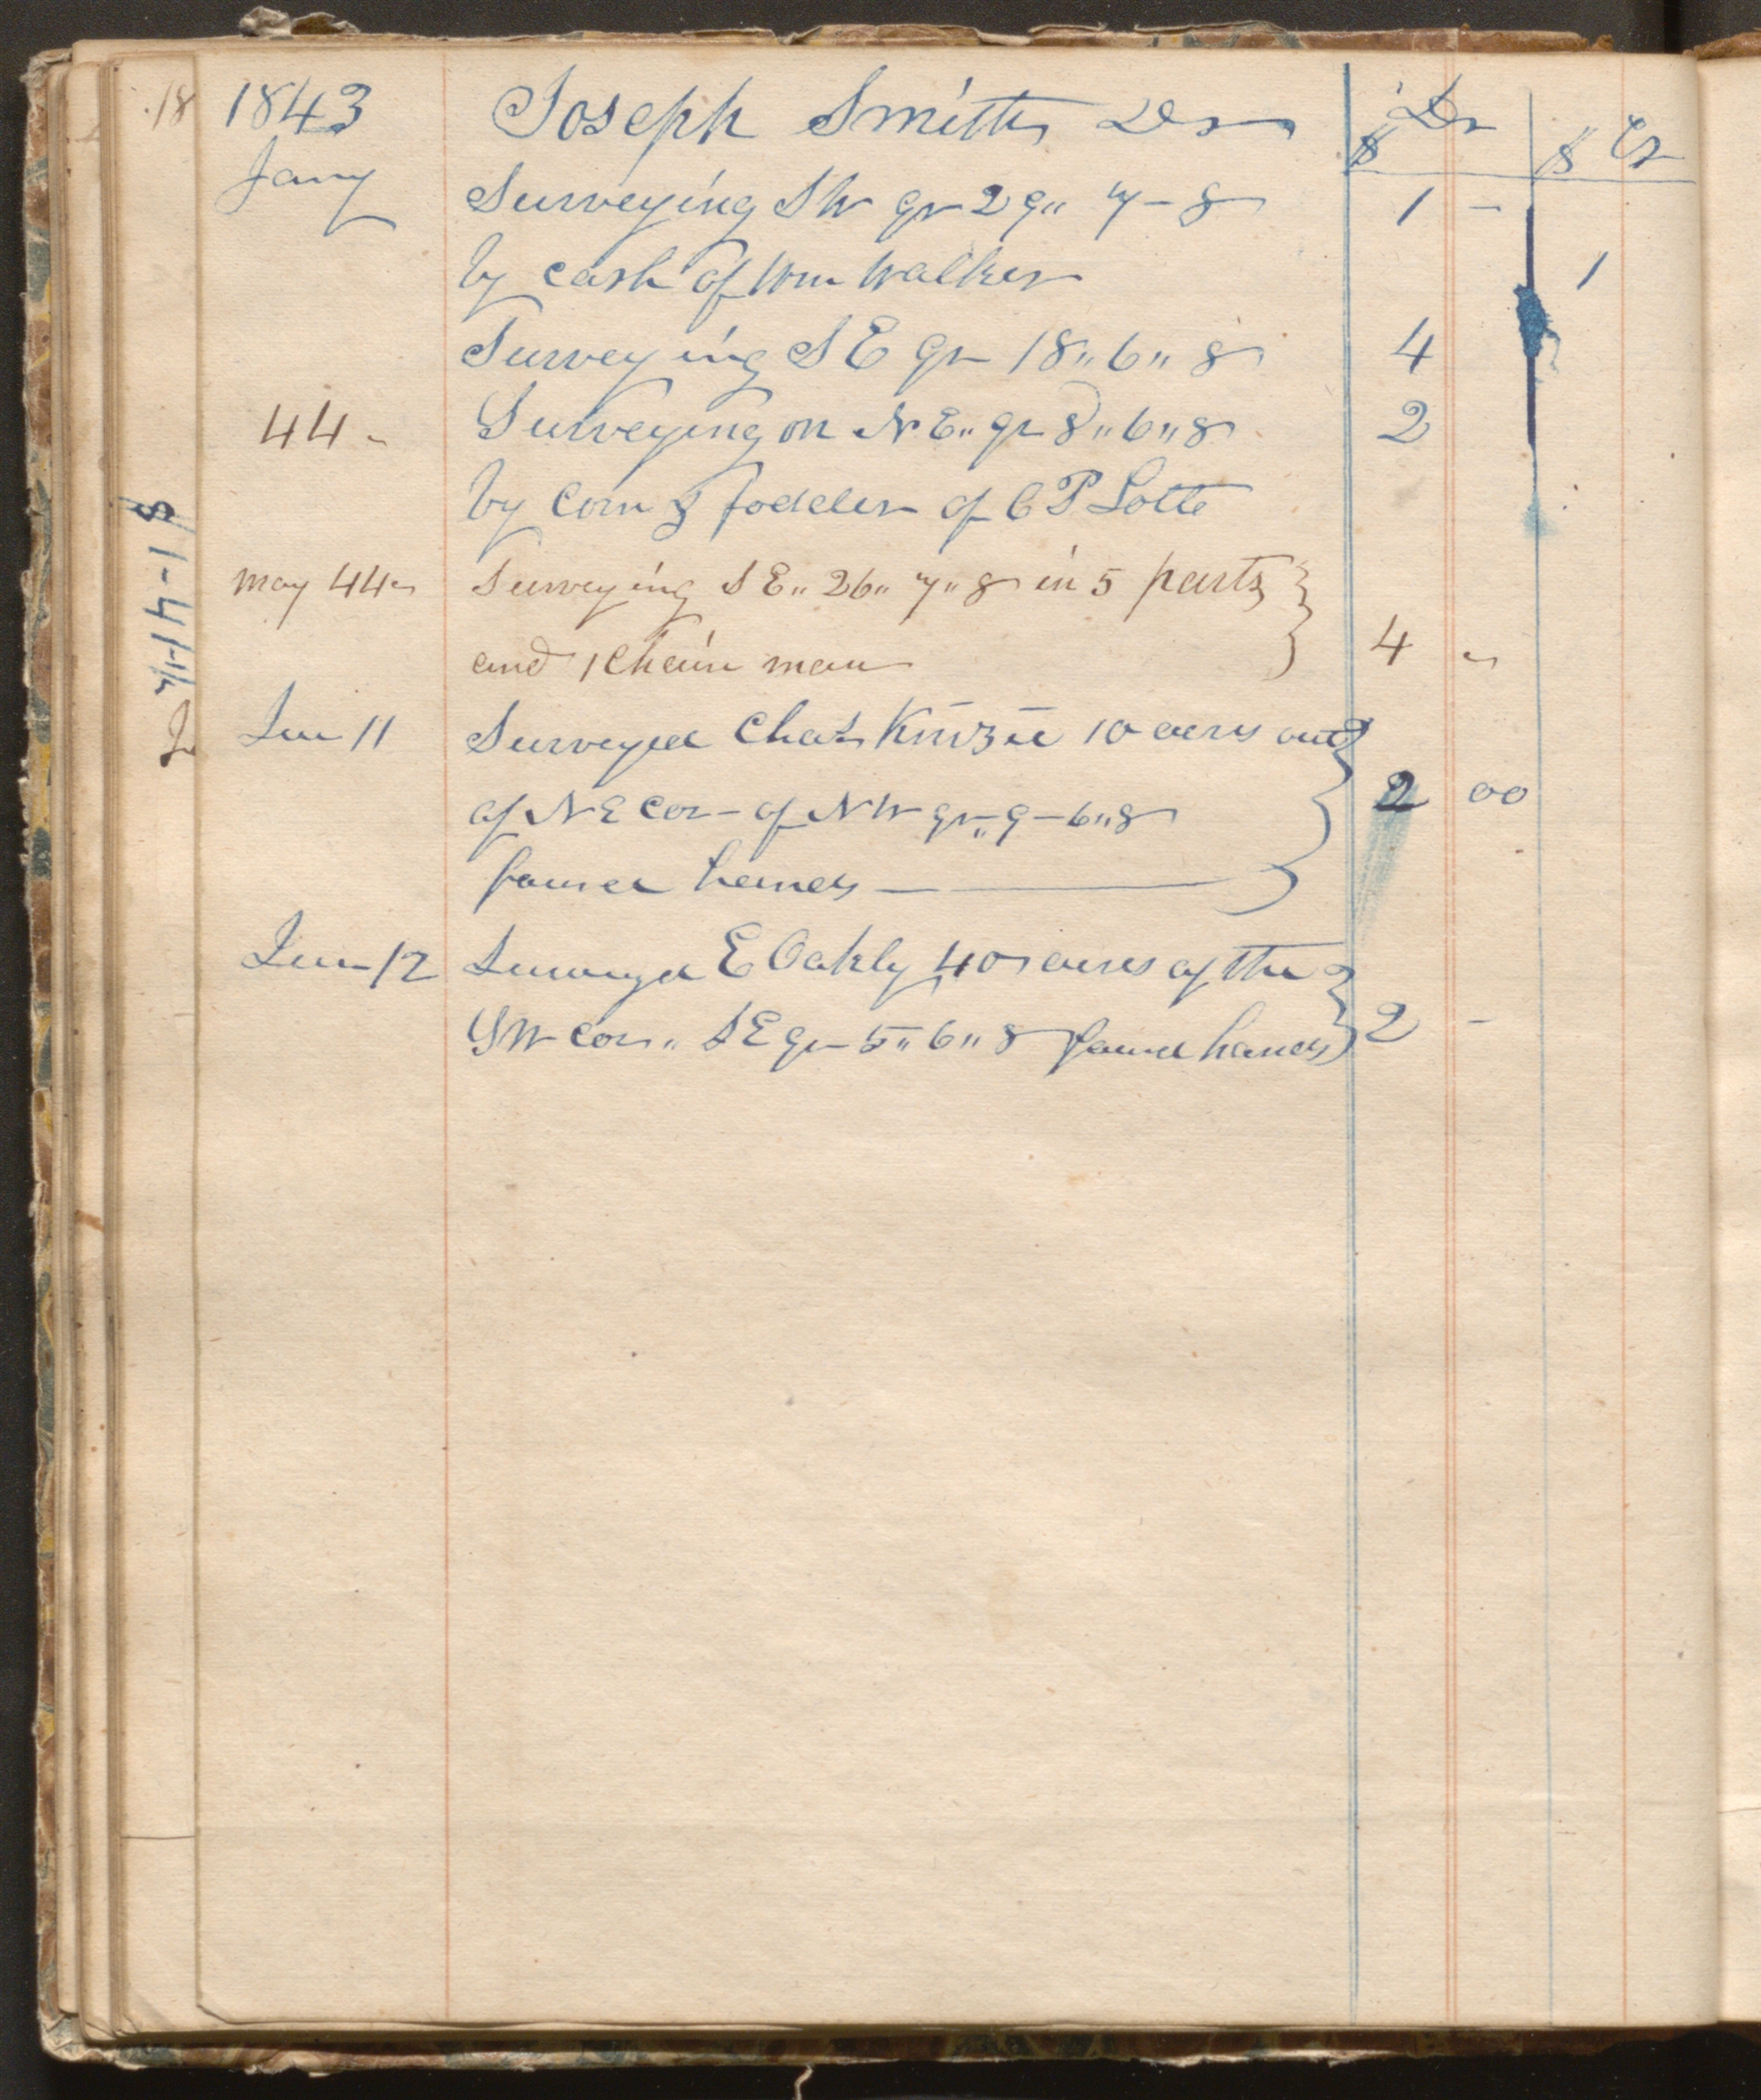 1843 Joseph Smith Dr $ Dr $ Cr
Jany Surveying SW qr 29,, 7-8 1 -
by cash of Wm Walker 1
Surveying S E qr 18,, 6,, 8 4
44- Surveying on N E,, qr 8,, 6,, 8 2
by Corn & fodder of C P Lotte
may 44- Surveying S E,, 26,, 7,, 8 in 5 parts
and 1 Chain man 4 -
Jun 11 Surveyed Chas Kinzie 10 acres out
of N E Cor- of N W qr,, 9-6,, 8 2 00
found hands
Jun 12 Surveyed E Oakly 40 acres of the
S W cor,, S E qr 5,, 6,, 8 found hands 2 -
18